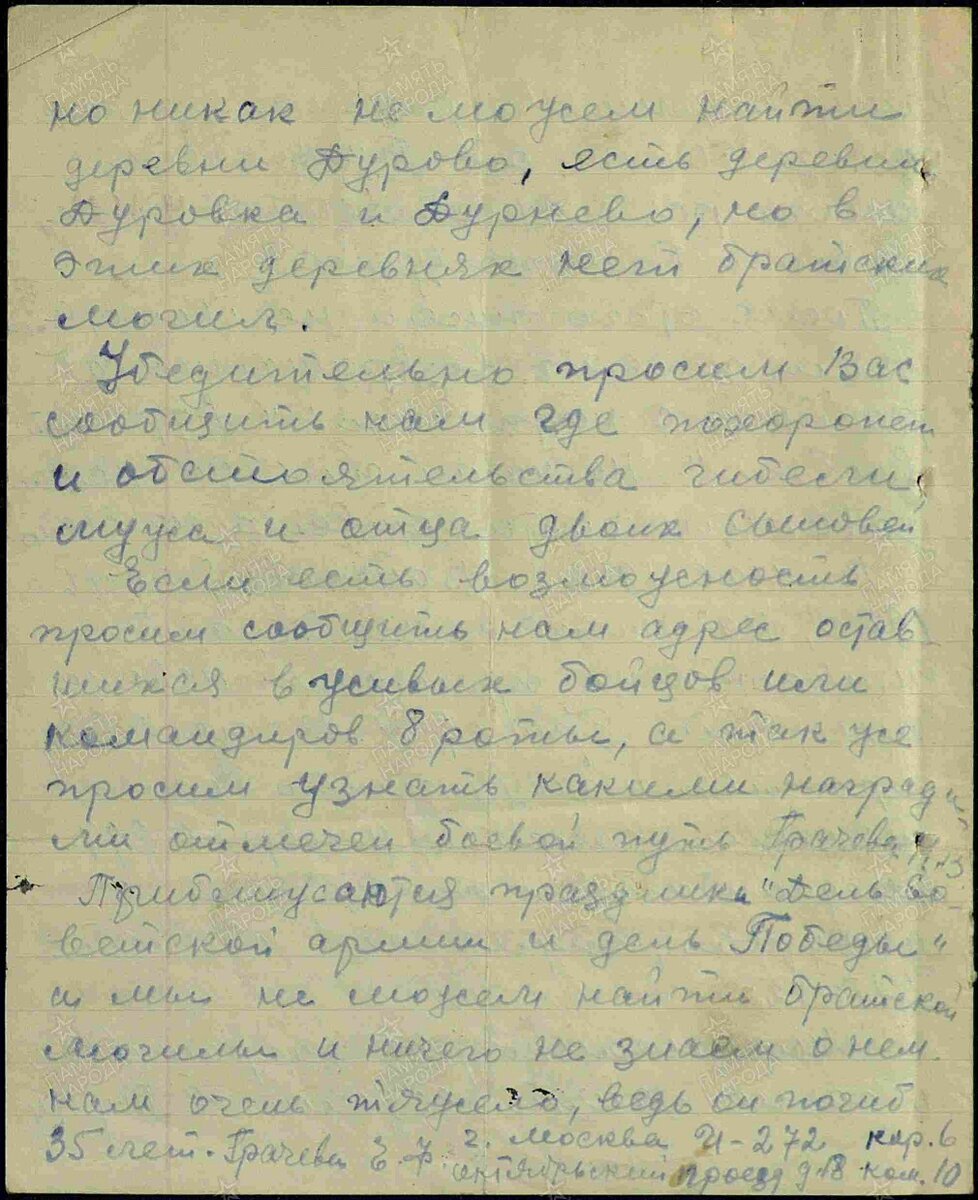 но никак не можем найти
деревни Дурово, есть деревни
Дуровка и Дурнево, но в
этих деревнях нет братских
могил.
Убедительно просим Вас
сообщить нам где похоронен
и обстоятельства гибели
мужа и отца двоих сыновей
Если есть возможность
просим сообщить нам адрес остав
шихся в живых бойцов или
командиров 8 роты, а так же
просим узнать какими наград
ми отмечен боевой путь Грачева
Приближаются праздники "День Со-
ветской армии и день Победы"
а мы не можем найти братской
могилы и ничего не знаем о нем.
нам очень тяжело, ведь он погиб
35 лет. Грачева Е. Ф. г. Москва И-272 кор. 6
октябрьский проезд д 18 ком. 10
ПАМЯТЬ НАРОДА